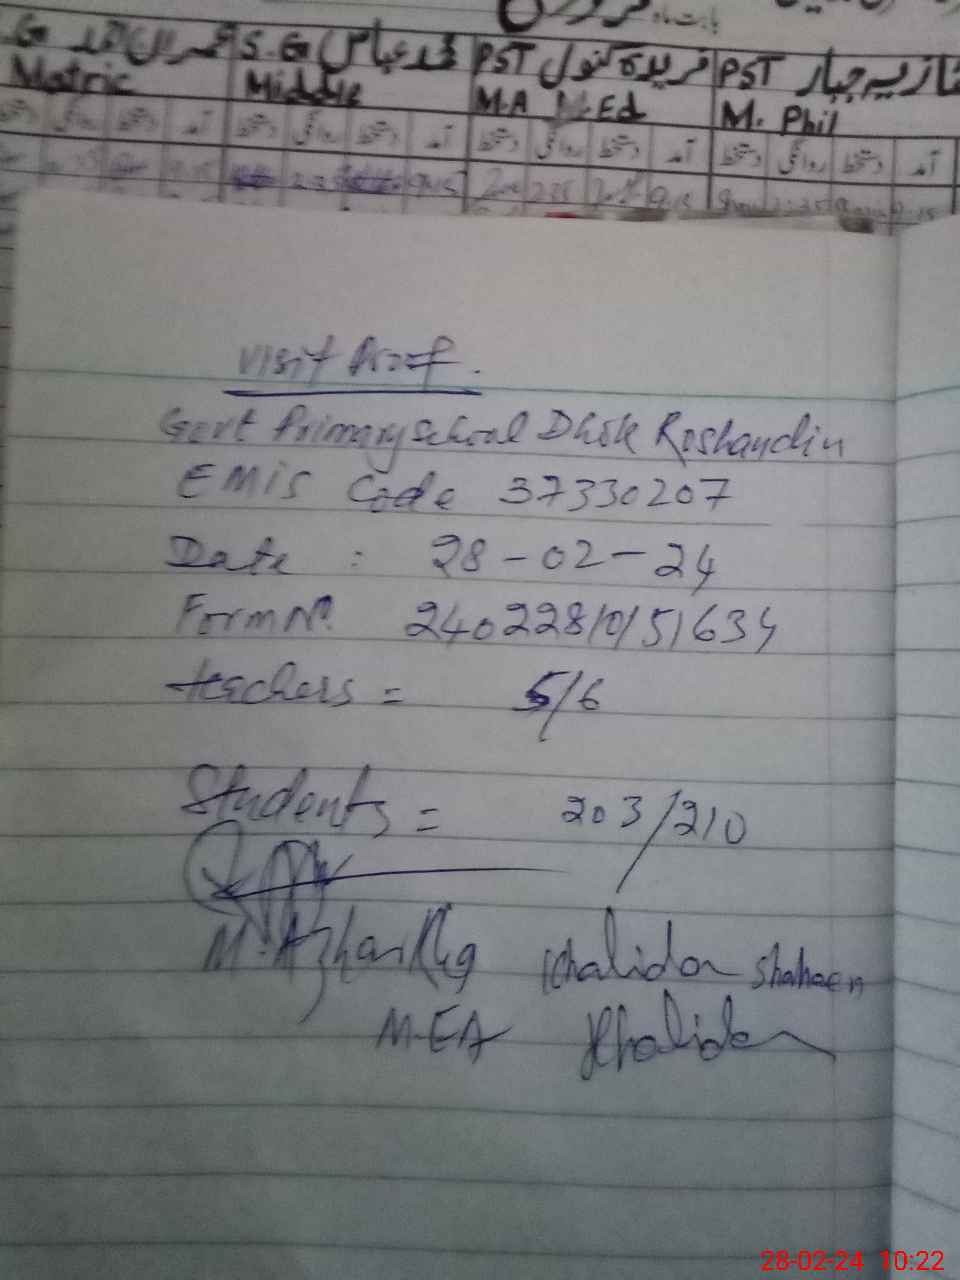 S.G محمد عباس
PST فریدہ کنول
PST نازیہ جبار
Matric
Middle
M.A M.Ed
M. Phil
دستخط روانگی دستخط آمد دستخط روانگی دستخط آمد دستخط روانگی دستخط آمد دستخط روانگی دستخط آمد
9:15 235 9:15
Visit Proof.
Govt Primary School Dhok Roshandin
EMIS Code 37330207
Date : 28-02-24
Form No. 24022810151634
teachers = 5/6
Students = 203/210
M. Azhar Khalida Shaheen
M.EA Khalida
28-02-24 10:22